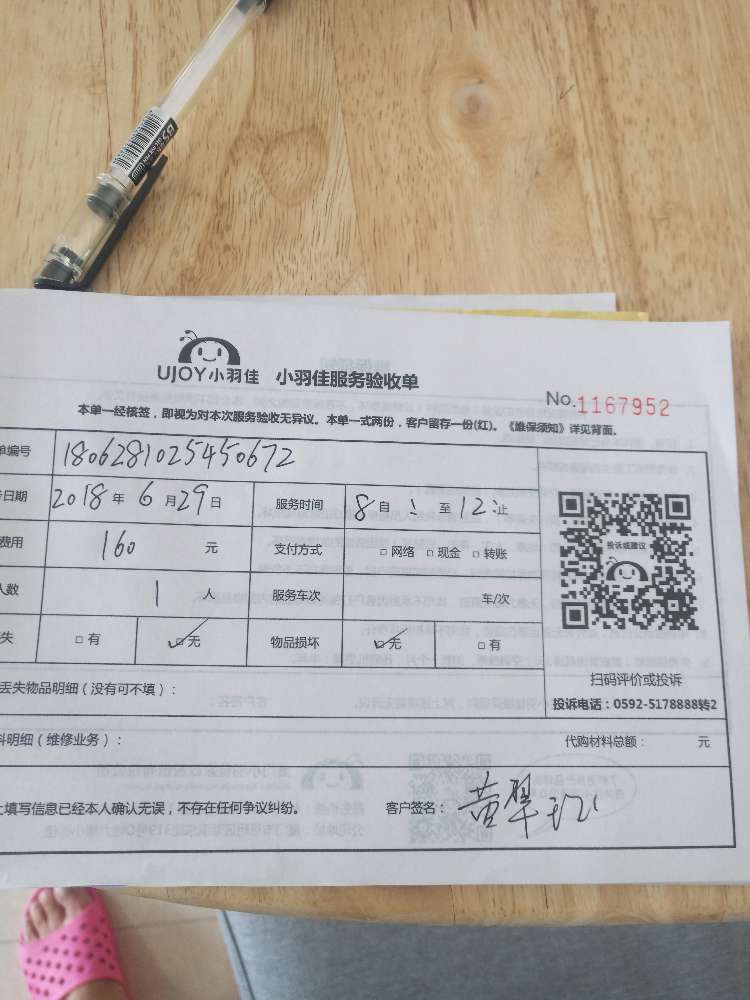 UJOY小羽佳 小羽佳服务验收单
No.1167952
本单一经核签，即视为对本次服务验收无异议。本单一式两份，客户留存一份(红)。《维保须知》详见背面。
单编号 180628102545067​2
日期 2018 年 6 月 29 日 服务时间 8 自 : 至 12 :止
费用 160 元 支付方式 □ 网络 □ 现金 □ 转账
人数 1 人 服务车次 车/次
失 □ 有 ☑ 无 物品损坏 ☑ 无 □ 有
投诉或建议
扫码评价或投诉
投诉电话：0592-5178888转2
丢失物品明细（没有可不填）：
料明细（维修业务）： 代购材料总额： 元
上填写信息已经本人确认无误，不存在任何争议纠纷。 客户签名： 黄翠